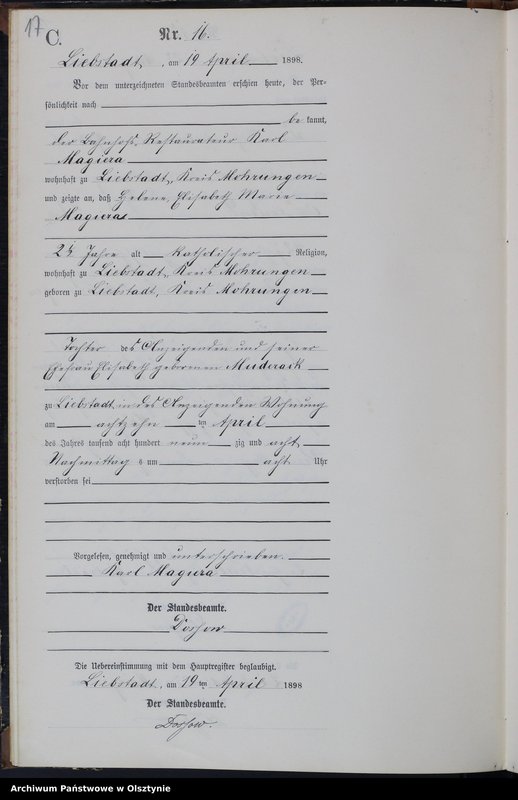 17
C.
Nr. 16.
Liebstadt, am 19 April 1898.
Vor dem unterzeichneten Standesbeamten erschien heute, der Per-
sönlichkeit nach
be kannt,
der Bahnhofs-Restaurateur Karl
Magiera
wohnhaft zu Liebstadt, Kreis Mohrungen
und zeigte an, daß Helene, Elisabeth Marie
Magiera
2½ Jahre alt katholischer Religion,
wohnhaft zu Liebstadt, Kreis Mohrungen
geboren zu Liebstadt, Kreis Mohrungen
Tochter des Anzeigenden und seiner
Ehefrau Elisabeth geborenen
zu Liebstadt, in des Anzeigenden Wohnung
am achtzehn ten April
des Jahres tausend acht hundert neun zig und acht
Nachmittag s um acht Uhr
verstorben sei
Vorgelesen, genehmigt und unterschrieben.
Karl Magiera
Der Standesbeamte.
Die Uebereinstimmung mit dem Hauptregister beglaubigt.
Liebstadt, am 19ten April 1898
Der Standesbeamte.
Archiwum Państwowe w Olsztynie